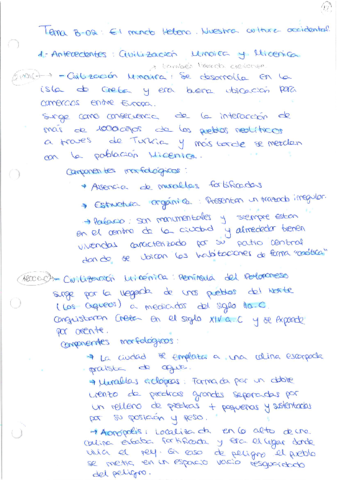 Tema B-02: El mundo Heleno. Nuestra cultura occidental
1- Antecedentes: Civilización Minoica y Micénica
- Civilización Minoica: Se desarrolla en la
isla de Creta y era buena ubicación para
comercios entre Europa.
Surge como consecuencia de la interacción de
más de años de los pueblos neolíticos
a través de Turkia y más tarde se mezclan
con la población Micénica.
Componentes morfológicos:
→ Ausencia de murallas fortificadas
→ Estructura orgánica. Presentan un trazado irregular.
→ Palacio: son monumentales y siempre están
en el centro de la ciudad y alrededor tienen
viviendas caracterizado por su patio central
donde se ubican las habitaciones de forma "caótica"
- Civilización Micénica: Península del Peloponeso
Surge por la llegada de unos pueblos del Norte
(Los Aqueos) a mediados del siglo a.C
conquistaron Creta en el siglo XIV a.C y se expande
por oriente.
Componentes morfológicos:
→ La ciudad se emplaza a una colina escarpada
provista de agua.
→ Murallas ciclópeas: Formada por un doble
lienzo de piedras grandes separadas por
un relleno de piedras + pequeñas y sustentadas
por su posición y peso.
→ Acrópolis: Localizada en lo alto de una
colina estaba fortificada y era el lugar donde
vivía el rey. En caso de peligro el pueblo
se metía en un espacio vacío resguardado
del peligro.